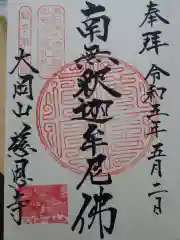 奉拝
令和五年五月二日
南無釈迦牟尼佛
大岡山
慈恩寺